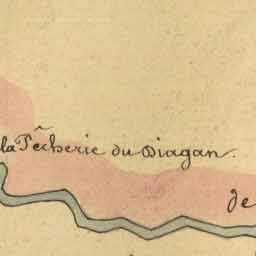 la Pêcherie du Diagan.
de